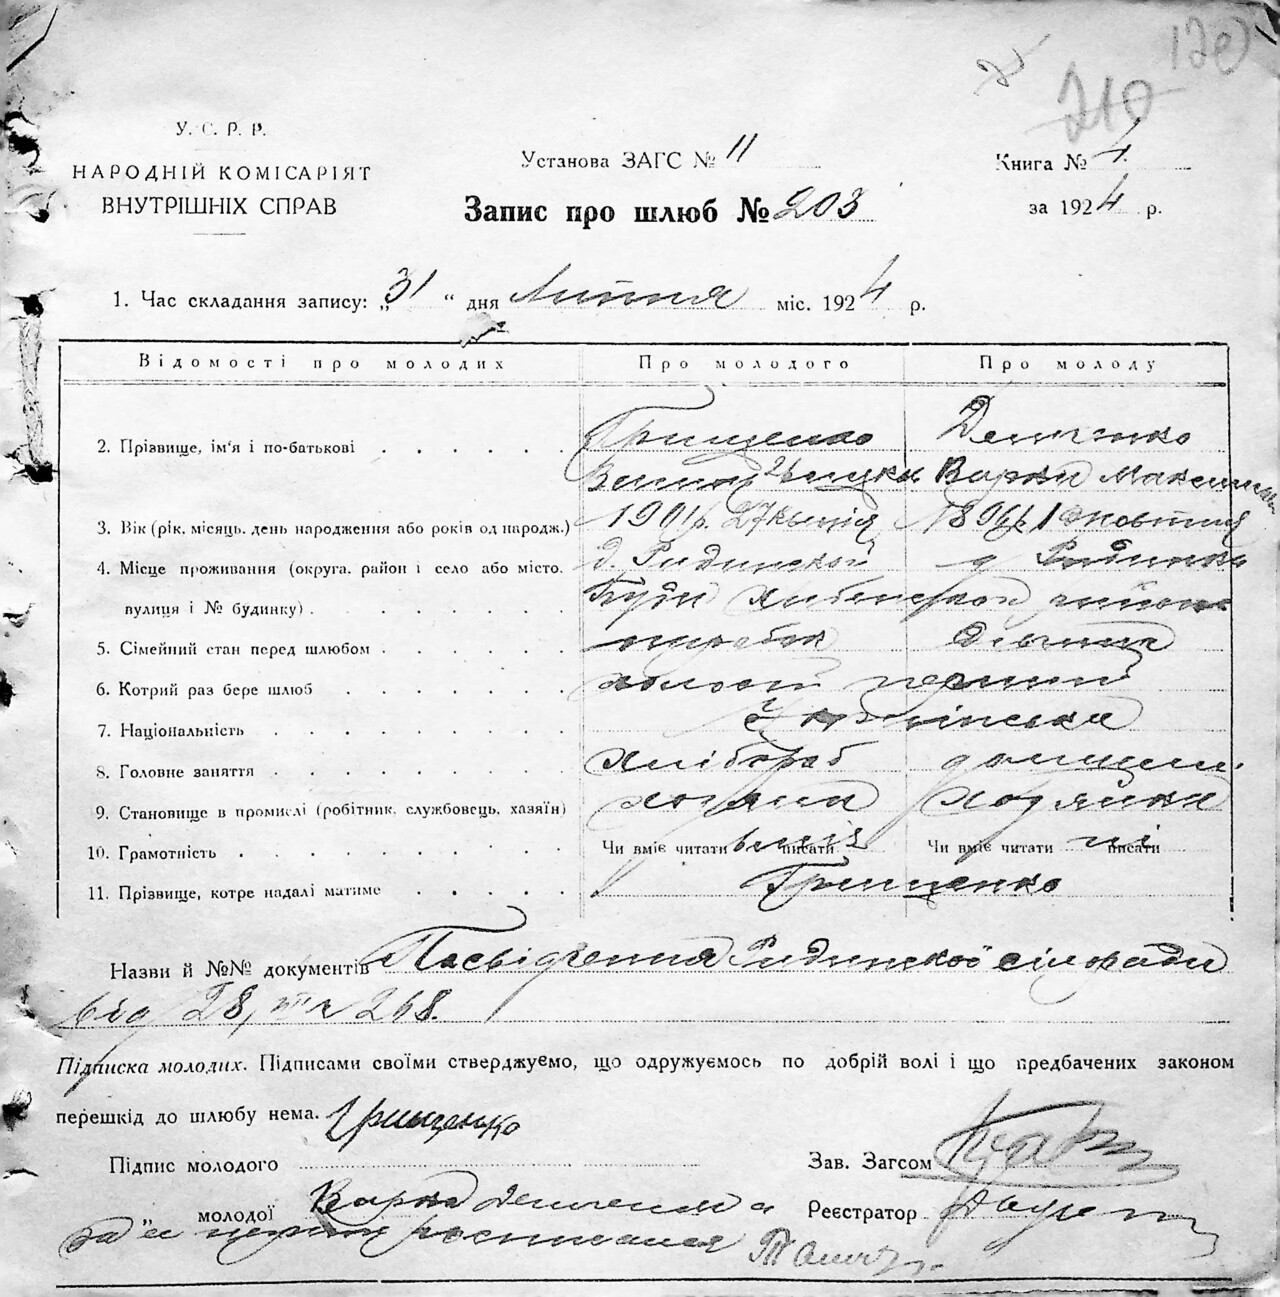 120
210
У. С. Р. Р.
НАРОДНІЙ КОМІСАРІЯТ
ВНУТРІШНІХ СПРАВ
Установа ЗАГС № 11
Книга № 4
Запис про шлюб № 203
за 1924 р.
1. Час складання запису: „31“ дня Липня міс. 1924 р.
Відомості про молодих Про молодого Про молоду
2. Прізвище, ім'я і по-батькові Грищенко Демченко
Варки
3. Вік (рік, місяць, день народження або років од народж.) 1901 р. 27 1896 р. 1 жовтня
4. Місце проживання (округа, район і село або місто, д. Рудинской д Рудинка
вулиця і № будинку) Буди района
5. Сімейний стан перед шлюбом парубок дівчина
6. Котрий раз бере шлюб первий
7. Національність Українська
8. Головне заняття хлібороб
9. Становище в промислі (робітник, службовець, хазяїн) хозяин хозяйка
10. Грамотність Чи вміє читати вміє писати Чи вміє читати ні писати
11. Прізвище, котре надалі матиме Грищенко
Назви й №№ документів Посвідчення Рудинскої сілради
від 28/VII № 268.
Підписка молодих. Підписами своїми стверджуємо, що одружуємось по добрій волі і що предбачених законом
перешкід до шлюбу нема.
Грищенко
Підпис молодого
Зав. Загсом
„ молодої Варка Демченкова
Реєстратор
за